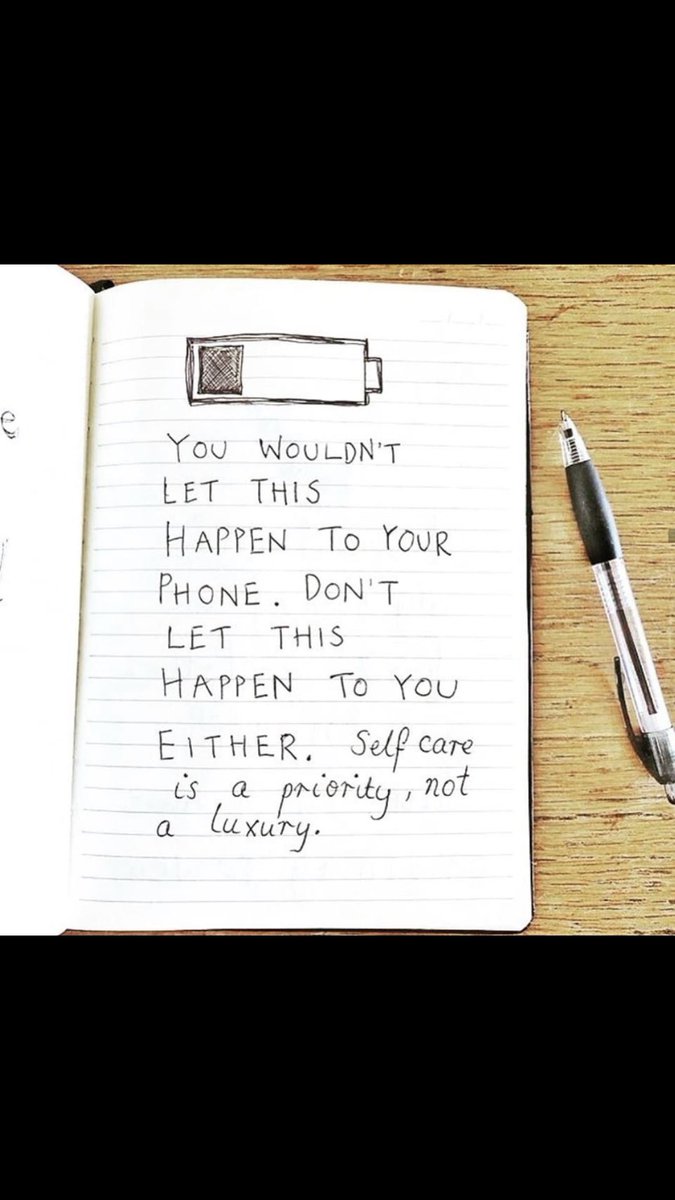 YOU WOULDN'T
LET THIS
HAPPEN TO YOUR
PHONE. DON'T
LET THIS
HAPPEN TO YOU
EITHER. Self care
is a priority, not
a luxury.